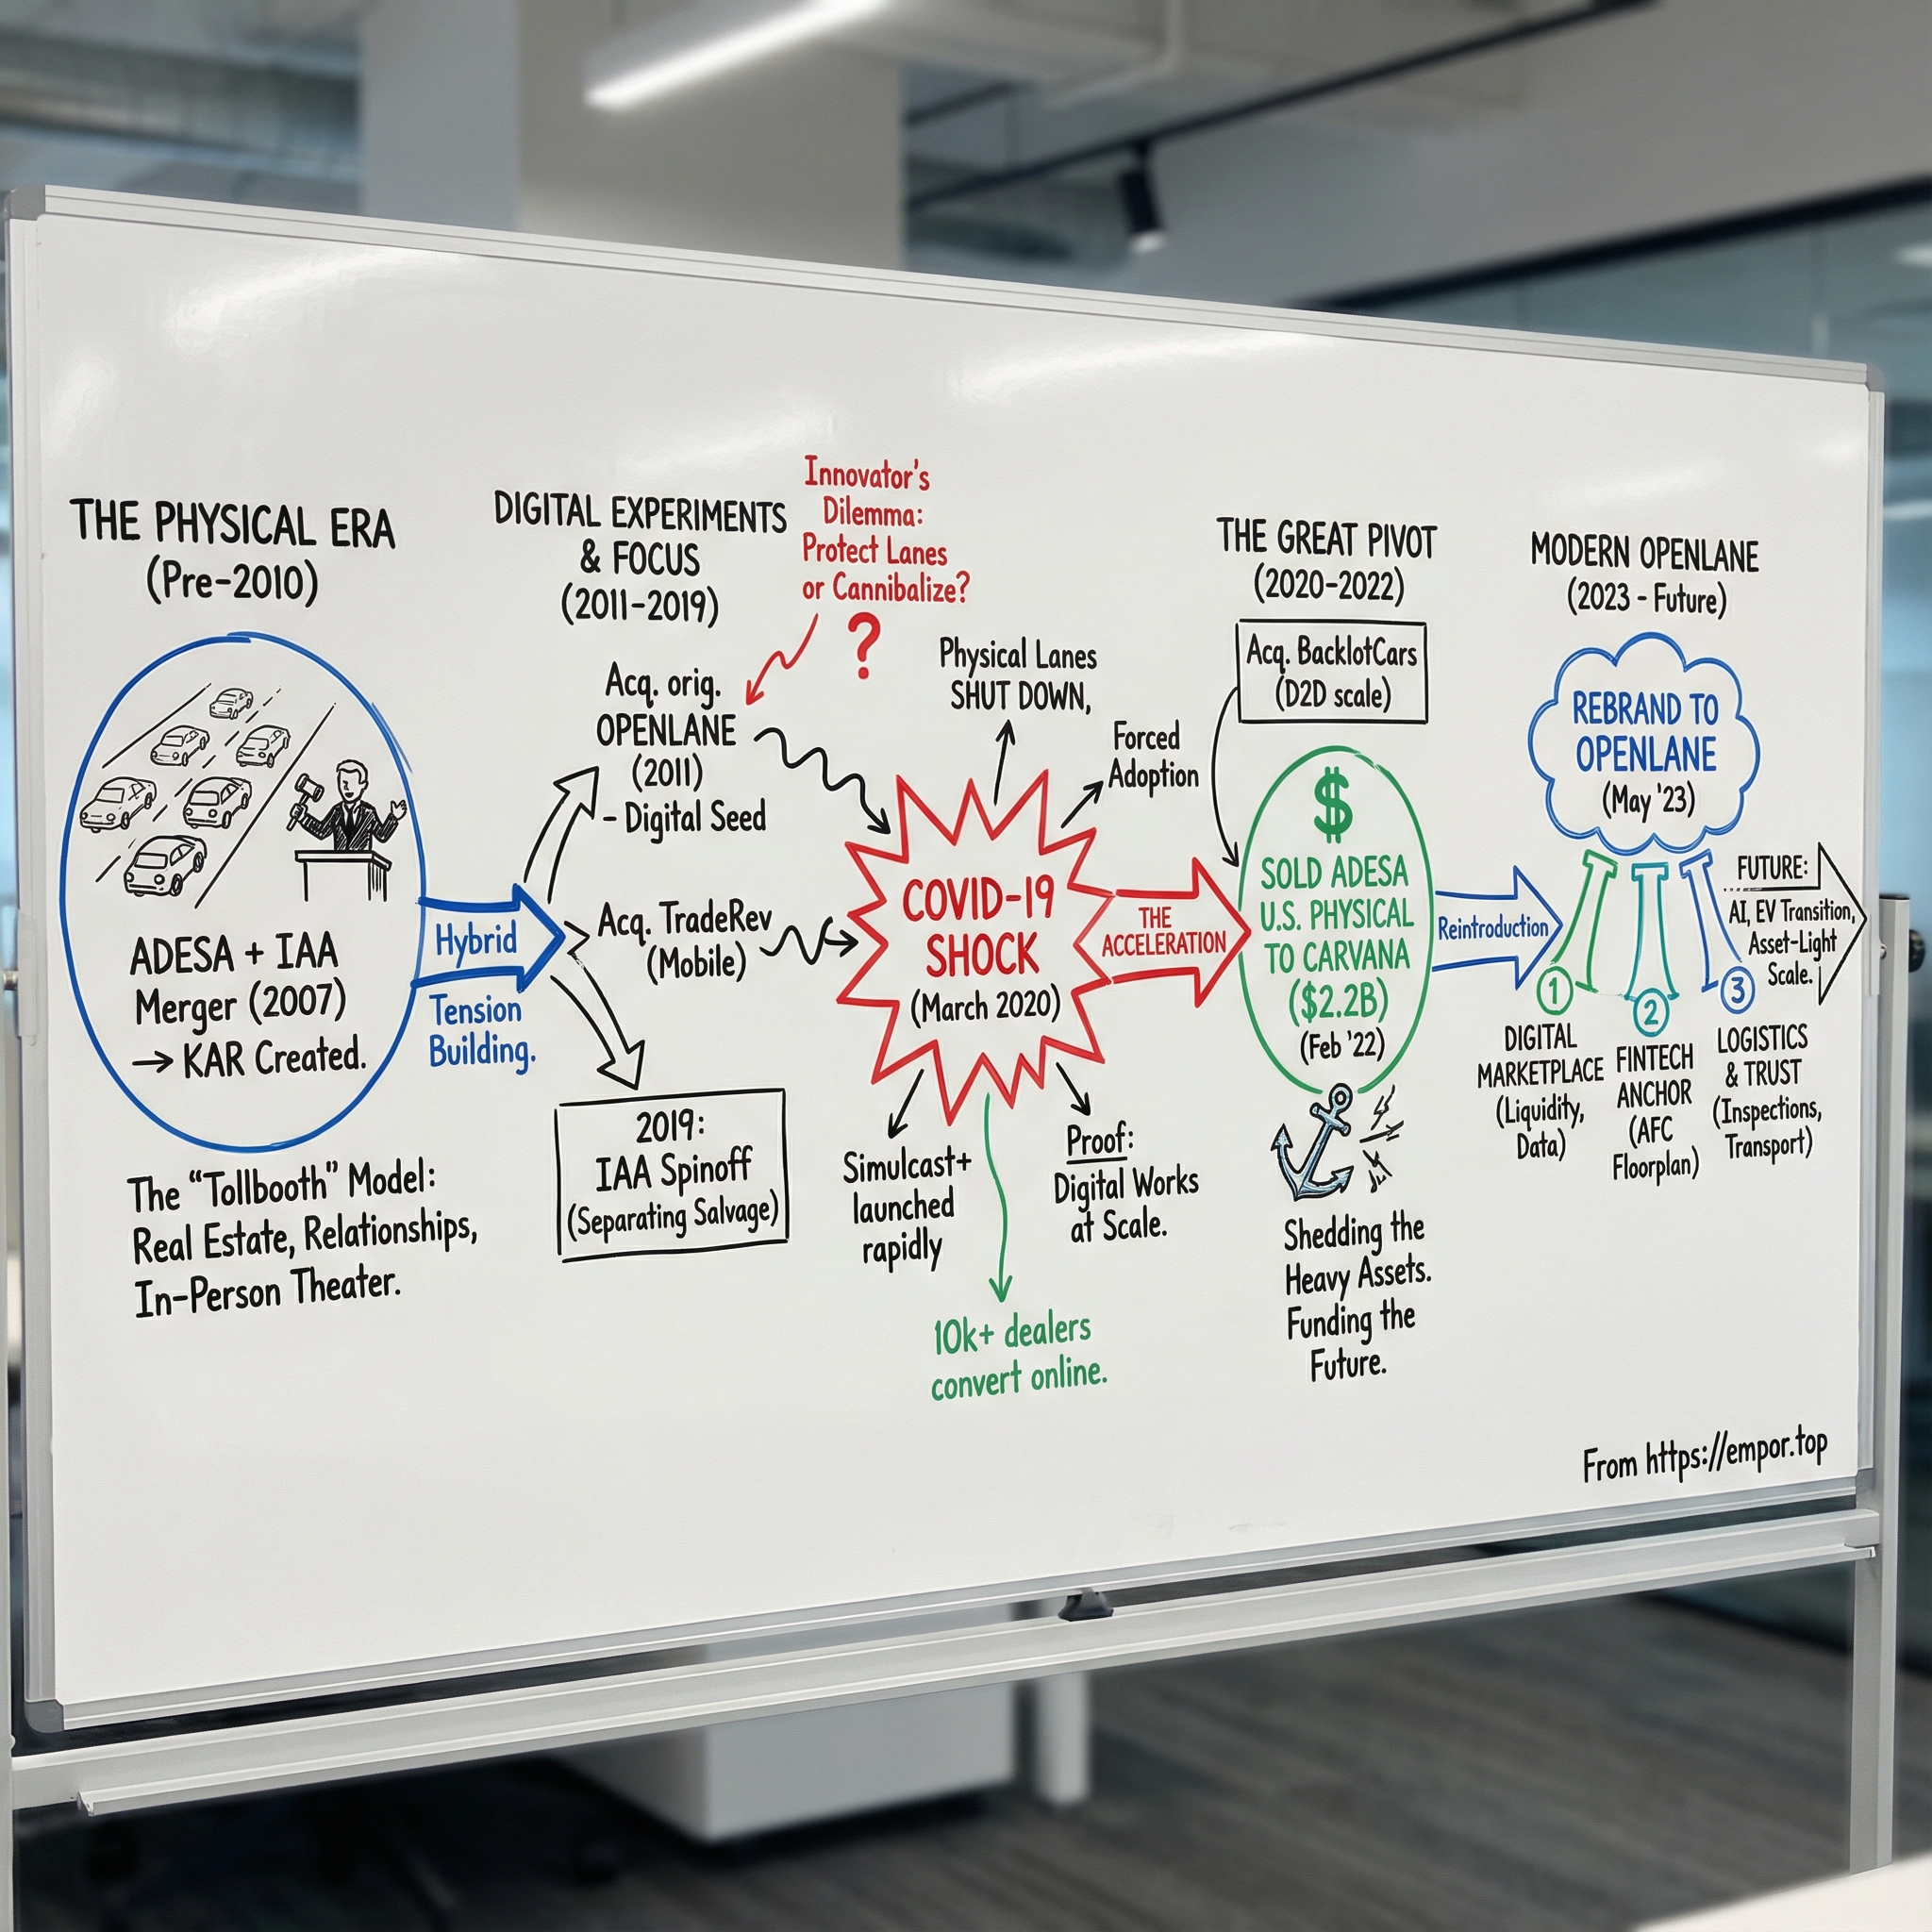 THE PHYSICAL ERA
(Pre-2010)
ADESA + IAA
Merger (2007)
→ KAR Created.
The "Tollbooth" Model:
Real Estate, Relationships,
In-Person Theater.
Hybrid
Tension
Building.
DIGITAL EXPERIMENTS
& FOCUS
(2011-2019)
Innovator's
Dilemma:
Protect Lanes
or Cannibalize?
?
Acq. orig.
OPENLANE
(2011)
- Digital Seed
Acq. TradeRev
(Mobile)
2019:
IAA Spinoff
(Separating Salvage)
Physical Lanes
SHUT DOWN,
Forced
Adoption
COVID-19
SHOCK
(March 2020)
Simulcast+
launched
rapidly
10k+ dealers
convert online.
Proof:
Digital Works
at Scale.
THE
ACCELERATION
THE GREAT PIVOT
(2020-2022)
Acq. BacklotCars
(D2D scale)
$
SOLD ADESA
U.S. PHYSICAL
TO CARVANA
($2.2B)
(Feb '22)
Shedding the
Heavy Assets.
Funding the
Future.
Reintroduction
MODERN OPENLANE
(2023 - Future)
REBRAND TO
OPENLANE
(May '23)
1
DIGITAL
MARKETPLACE
(Liquidity,
Data)
2
FINTECH
ANCHOR
(AFC
Floorplan)
3
LOGISTICS
& TRUST
(Inspections,
Transport)
FUTURE:
AI, EV Transition,
Asset-Light
Scale.
From https://empor.top